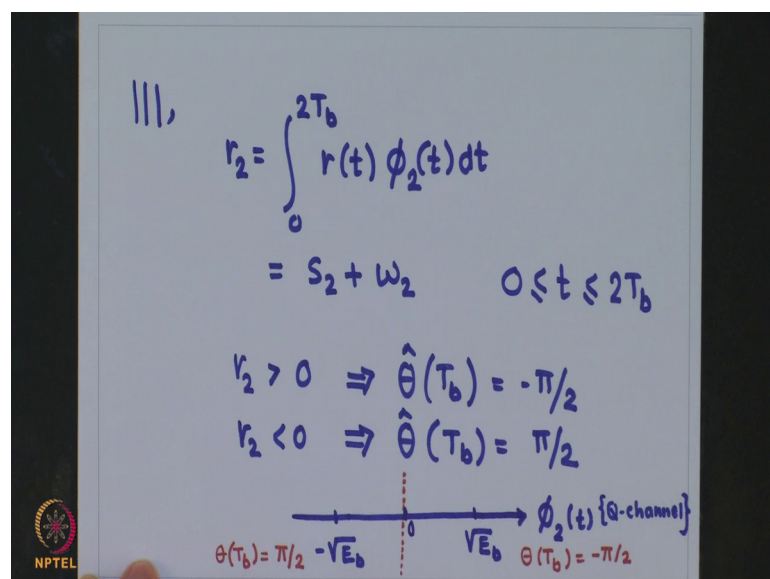 |||,
2T_b
r₂ = ∫ r(t) ϕ₂(t) dt
0
= S₂ + W₂    0 ≤ t ≤ 2T_b
r₂ > 0 ⇒ θ̂(T_b) = -π/2
r₂ < 0 ⇒ θ̂(T_b) = π/2
ϕ₂(t) {Q-channel}
0
θ(T_b) = π/2  -√E_b  √E_b  θ(T_b) = -π/2
NPTEL